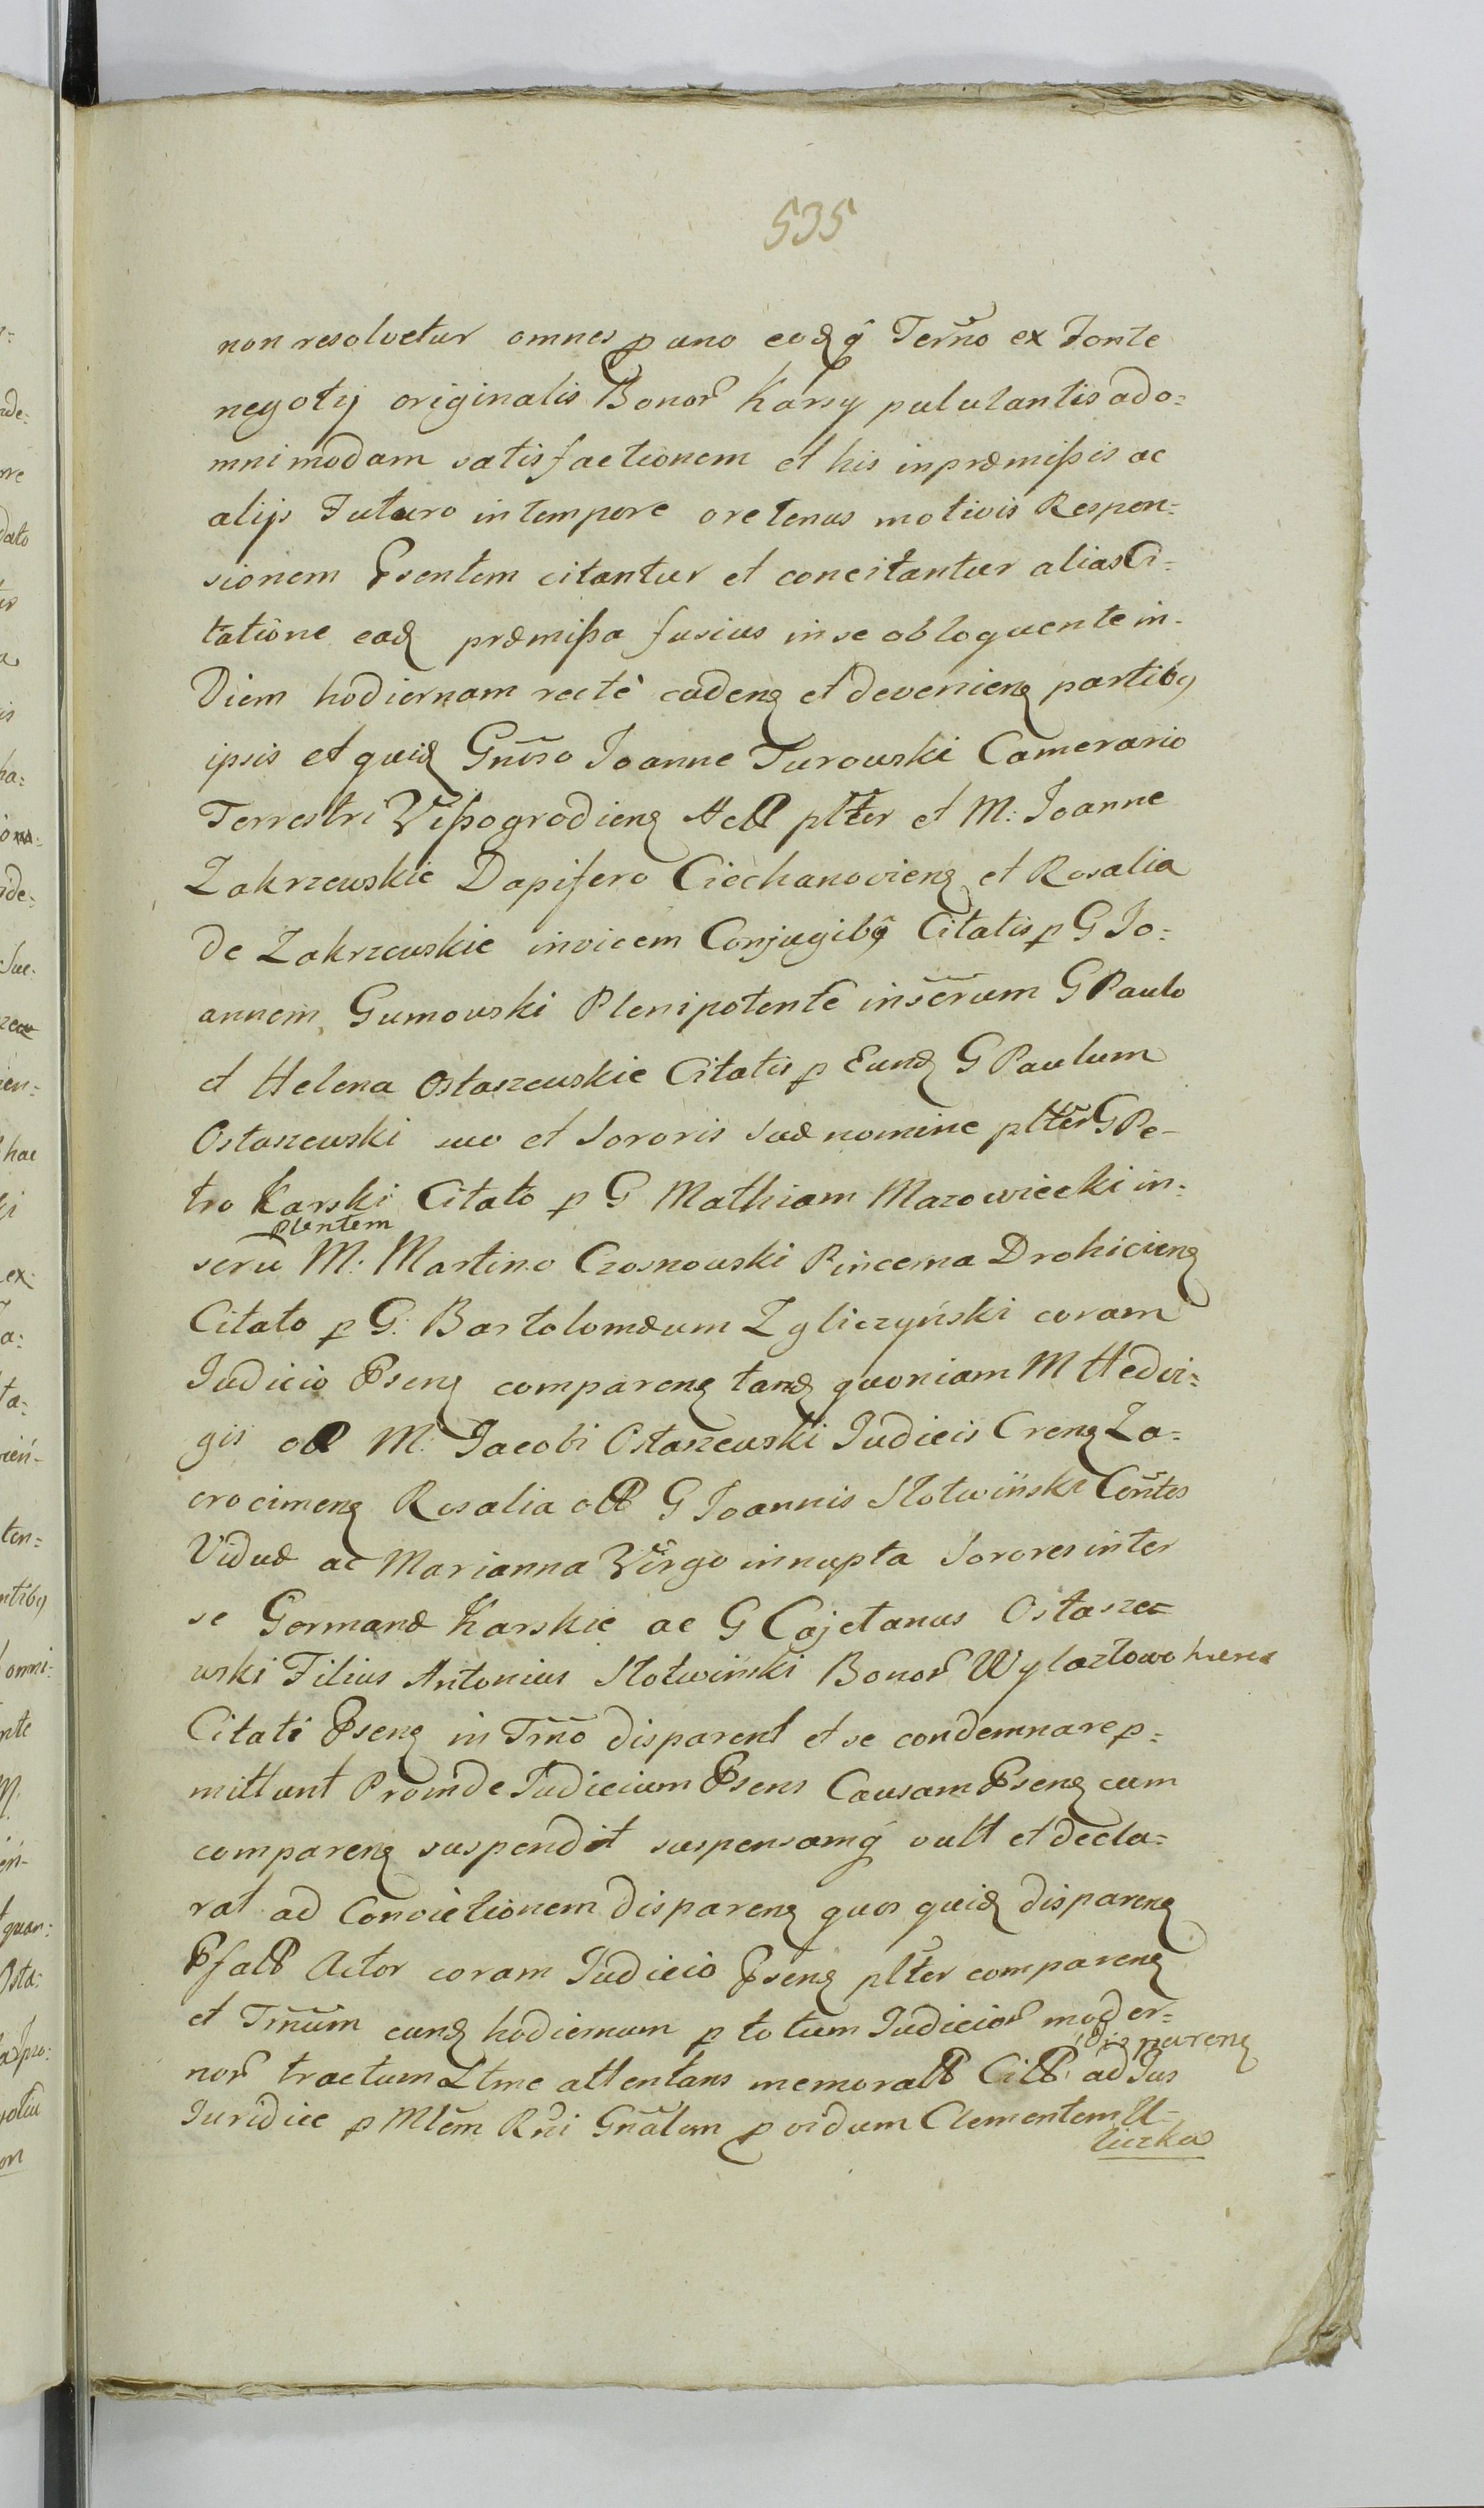 535
non resolvetur omnes p uno eodq Term̃o ex Fonte
negotij originalis Bonor Karsy pululantis ad o=
mnimodam satisfactionem et his in præmißis ac
alijs Futuro in tempore oretenus motivis Respon=
sionem Psentem citantur et concitantur alias Ci=
tatione ead præmißa fusius in se obloquente in=
Diem hodiernam rectè caden et devenien partibq
ipsis et quid Gnroso Joanne Turowski Camerario
Terrestri Wißogrodien Act plter et M: Joanne
Zakrzewskie Dapifero Ciechanovien et Rosalia
de Zakrzewskie invicem Conjugibq Citatis p G Jo=
annem Gumowski Plenipotente inserum G Paulo
et Helena Ostaszewskie Citatis p Eund G Paulum
Ostaszewski suo et Sororis suæ nomine plter G Pe=
tro Karski Citato p G Mathiam Mazowiecki in=
plentem
seru M: Martino Czosnowski Pincerna Drohicien
Citato p G: Bartolomæum Zgliczyński coram
Judicio Psen comparen tand quoniam M Hedvi=
gis olt M: Jacobi Ostaszewski Judicis Cren Za=
crocimen Rosalia olt G Joannis Słotwiński Contes
Viduæ ac Marianna Virgo innupta Sorores inter
se Germanæ Karskie ac G Cajetanus Ostasze=
wski Filius Antonius Słotwiński Bonor Wylazłowo
Citati Psen in Tm̃no disparent et se condemnare p=
mittunt Proinde Judicium Psens Causam Psen cum
comparen suspendit suspensamq vult et decla=
rat ad Convictionem disparen quos quid disparen
Pfalt Actor coram Judicio Psen plter comparen
et Tm̃num eund hodiernum p totum Judicior moder=
disparen
nor tractum Ltme attentans memoralt Citt ad Jus
Juridice p Mlem Rni Gnalem p vidum Clementem U=
liczka